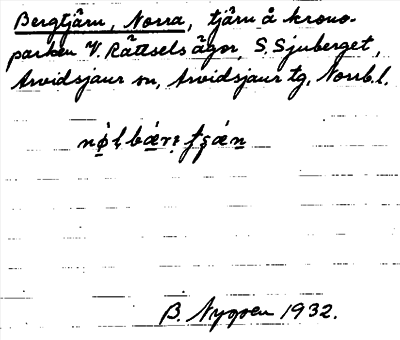 Bergtjärn, Norra, tjärn å krono-
parken V. Rättsels ägor, S. Sjuberget,
Arvidsjaur sn, Arvidsjaur tg, Norrb. l.
B. Nygren 1932.